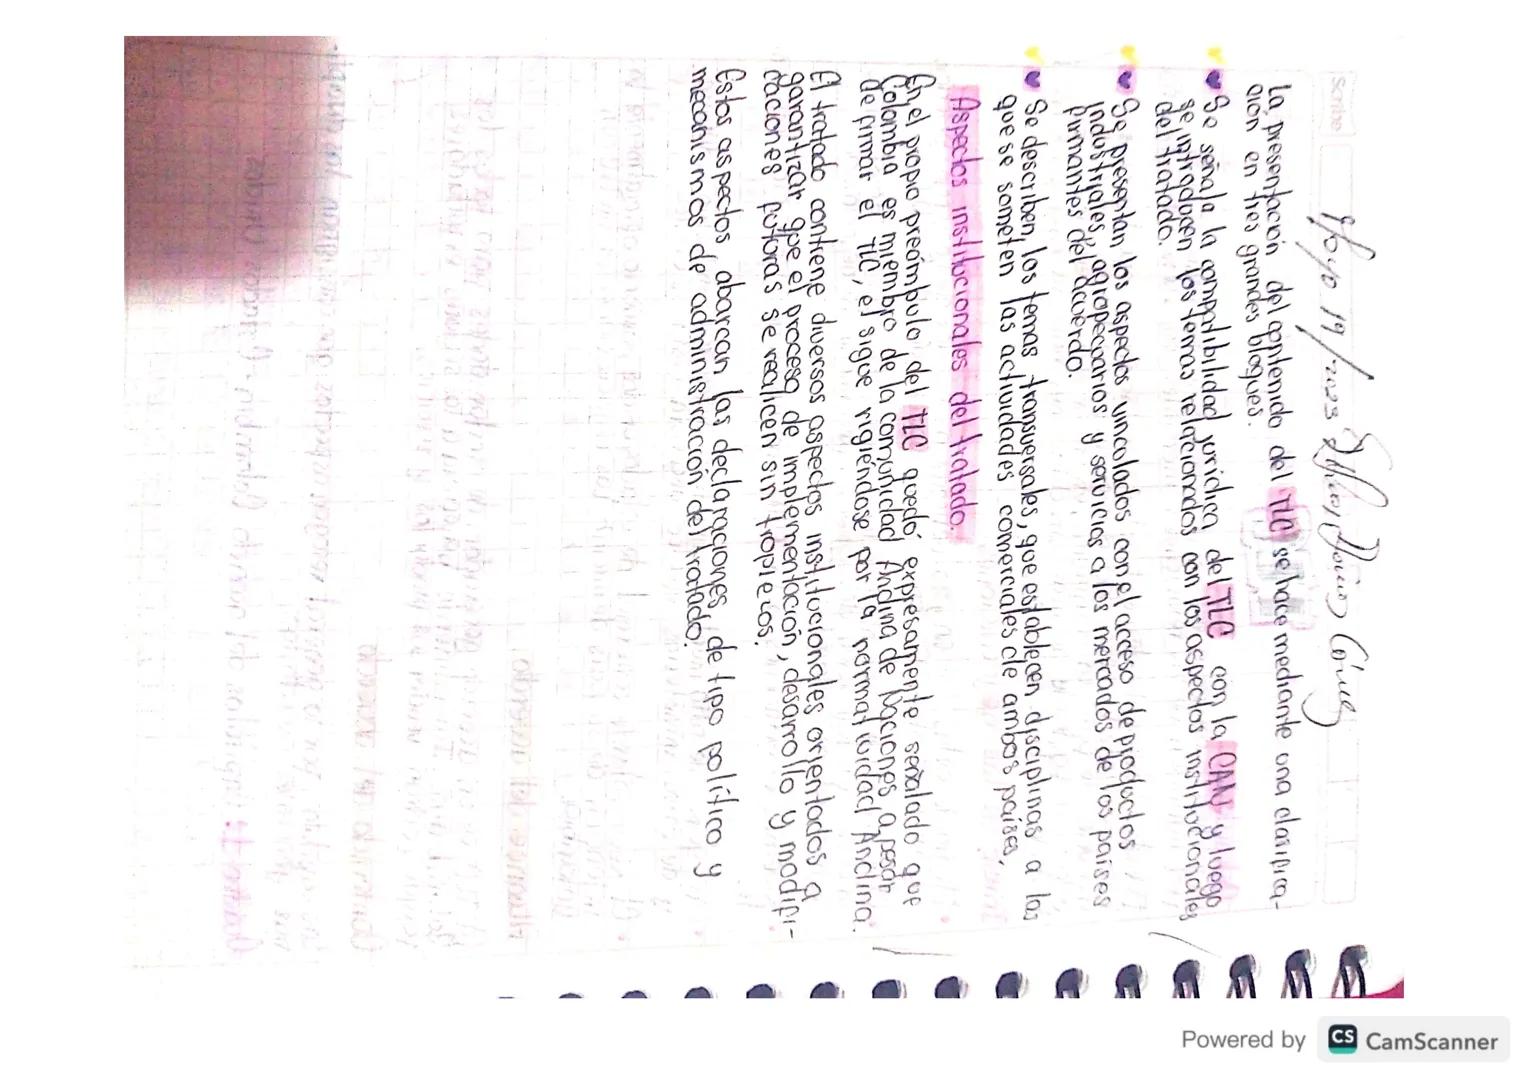 Scribe
Mayo 19/2023
La presentación del contenido del TLC se hace mediante una clasifica-
ción en tres grandes bloques.
Se señala la compatibilidad jurídica del TLC con la CAN y luego
se introducen los temas relacionados con los aspectos institucionales
del tratado.
Se presentan los aspectos vinculados con el acceso de productos
industriales, agropecuarios y servicios a los mercados de los países
firmantes del acuerdo.
Se describen los temas transversales, que establecen disciplinas a las
que se someten las actividades comerciales de ambos países.
Aspectos institucionales del tratado.
En el propio preámbulo del TLC quedó expresamente señalado que
Colombia es miembro de la comunidad Andina de Naciones a pesar
de firmar el TLC, el sigue rigiéndose por la normatividad Andina.
El tratado contiene diversos aspectos institucionales orientados a
garantizar que el proceso de implementación, desarrollo y modifi-
caciones futuras se realicen sin tropiezos.
Estos aspectos, abarcan las declaraciones de tipo político y
mecanismos de administración del tratado.
Powered by CS CamScanner